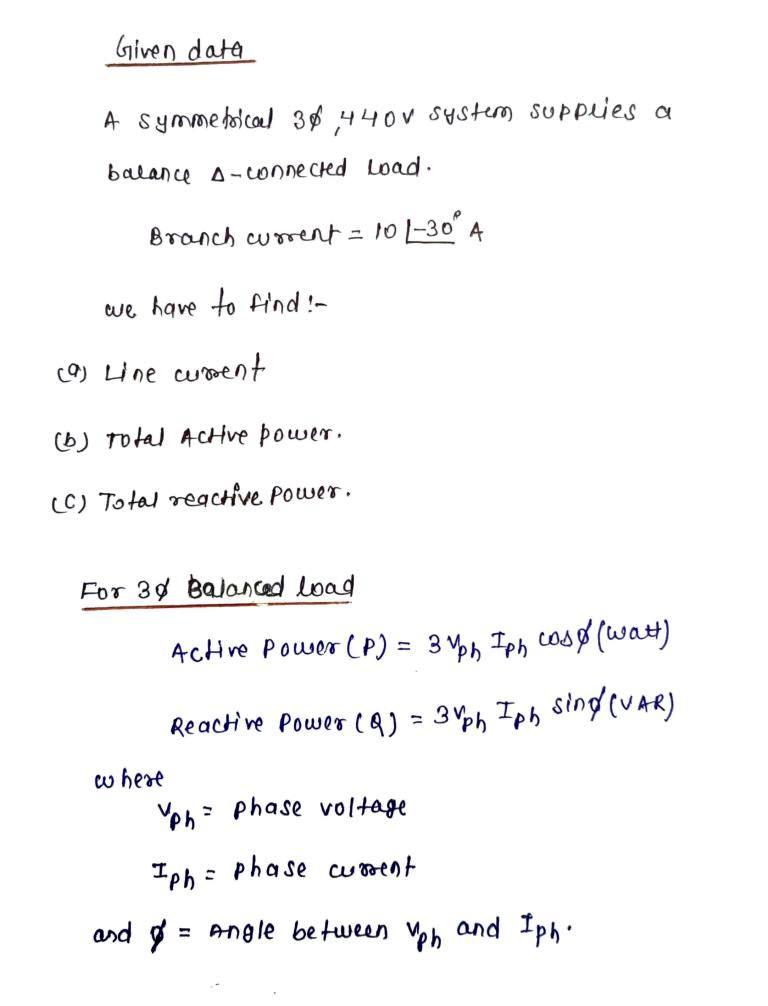 Given data
A symmetrical 3ϕ, 440V system supplies a
balance Δ-connected Load.
Branch current = 10 ∠-30° A
we have to find:-
(a) Line current
(b) Total Active power.
(C) Total reactive power.
For 3ϕ Balanced load
Active Power (P) = 3 Vph Iph cosϕ (watt)
Reactive Power (Q) = 3Vph Iph sinϕ (VAR)
where
Vph = phase voltage
Iph = phase current
and ϕ = Angle between Vph and Iph.